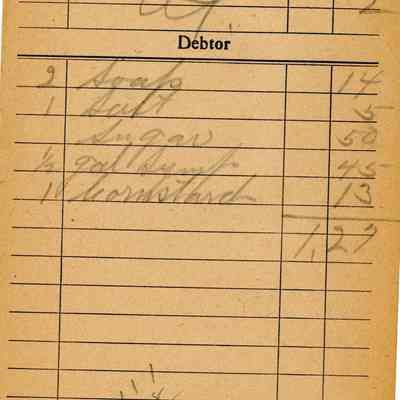 2
Debtor
2 Soap 14
1 Salt 5
Sugar 50
1/2 gal Syrup 45
1 Cornstarch 13
1,27